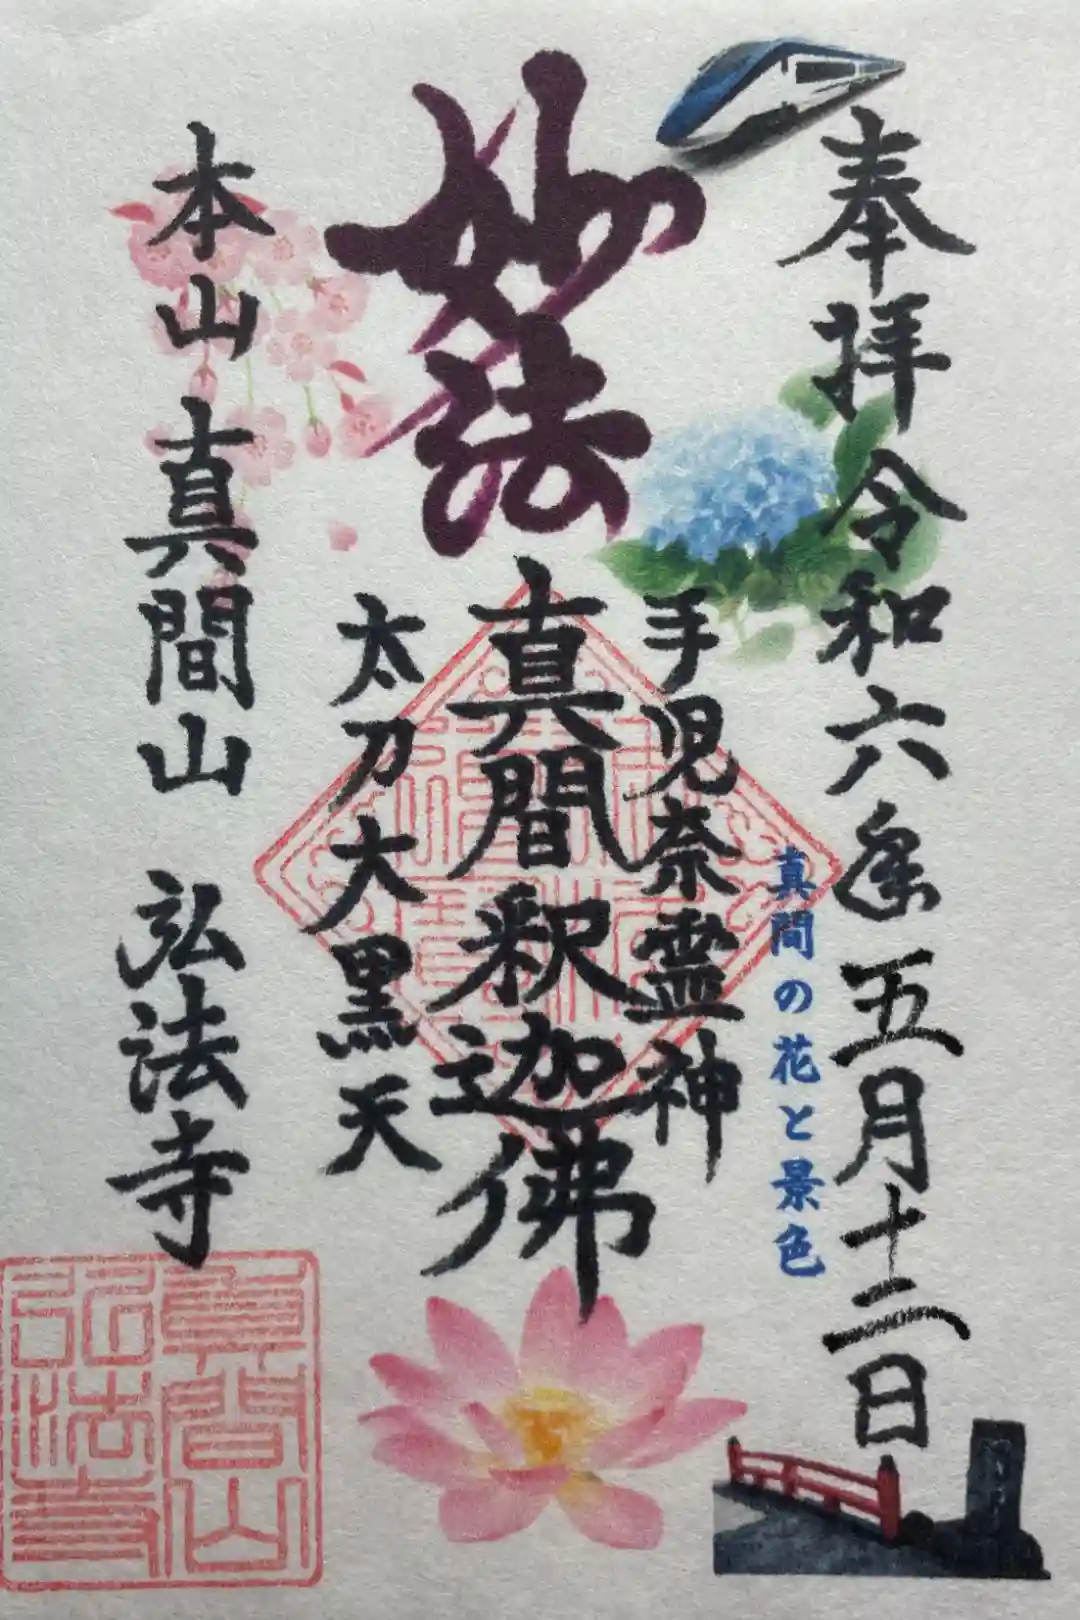 奉拝 令和六年五月十二日
真間の花と景色
妙法
手児奈霊神
真間釈迦佛
太刀大黒天
本山 真間山 弘法寺
真間山
弘法寺